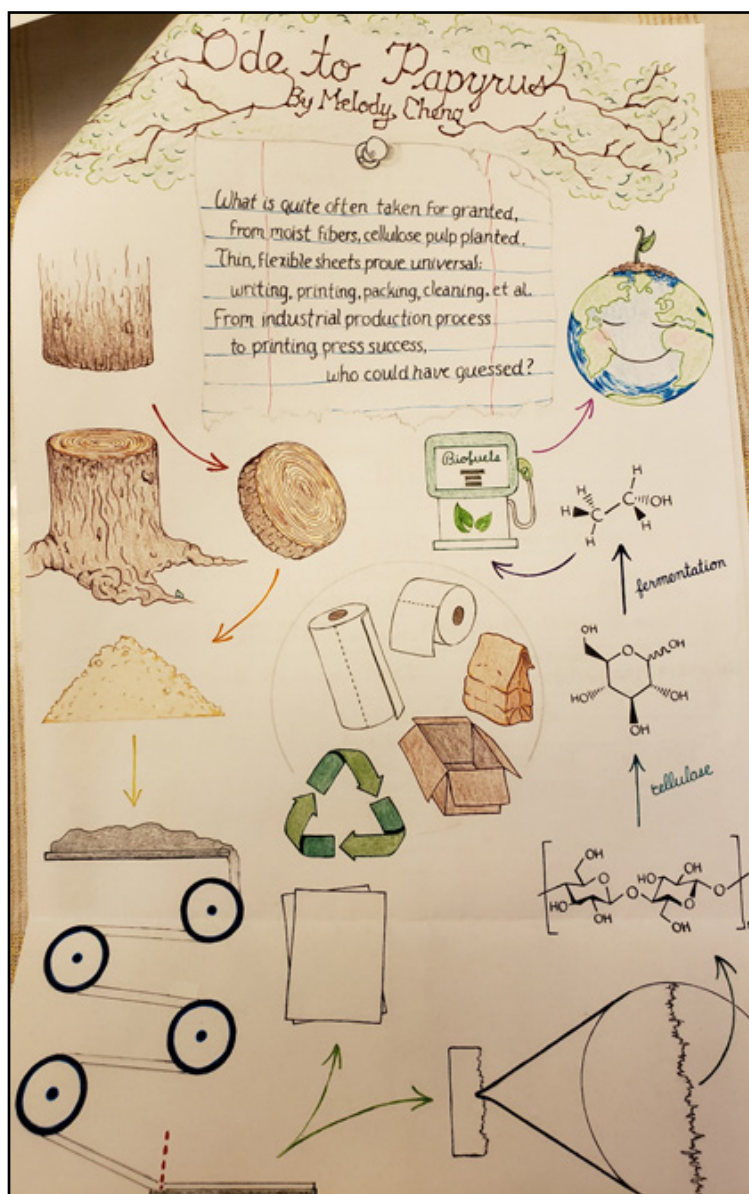 Ode to Papyrus
By Melody Cheng
What is quite often taken for granted,
from moist fibers, cellulose pulp planted.
Thin, flexible sheets prove universal:
writing, printing, packing, cleaning, et al.
From industrial production process
to printing press success,
who could have guessed?
Biofuels
H
H
H
C
C
OH
H
H
fermentation
OH
O
OH
HO
OH
OH
cellulase
OH
OH
O
HO
O
HO
OH
O
O
OH